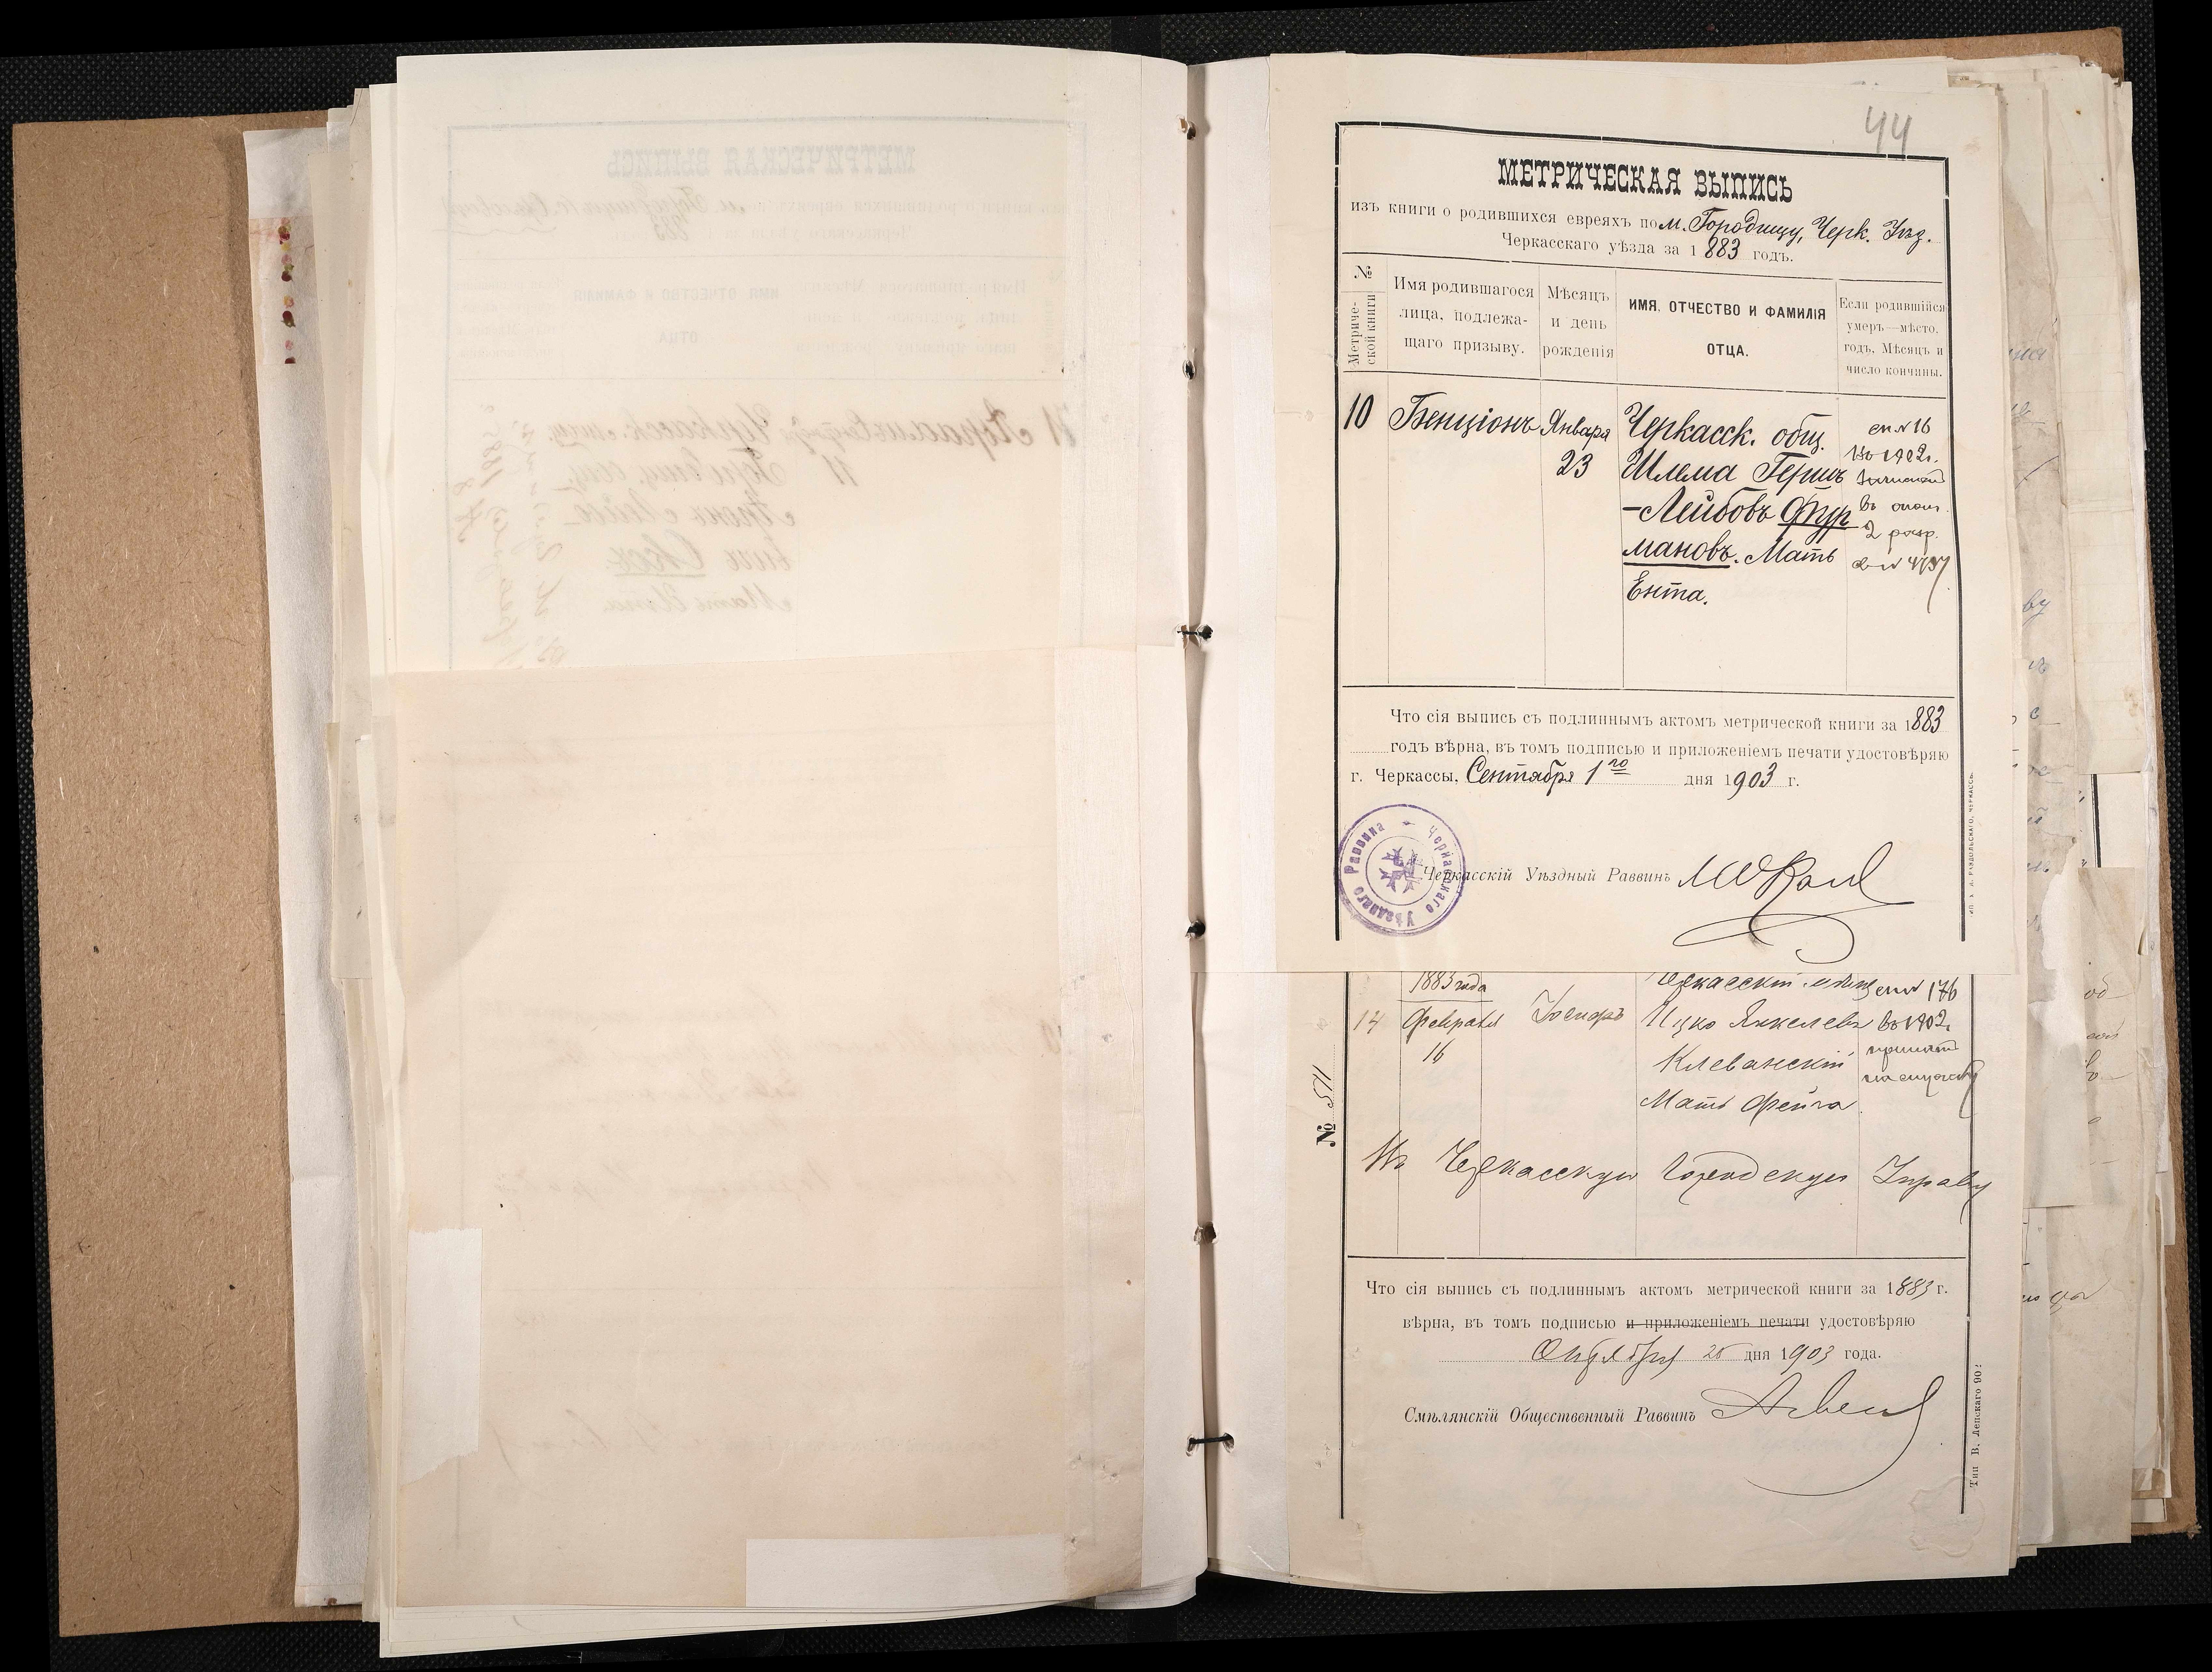 44
МЕТРИЧЕСКАЯ ВЫПИСЬ
изъ книги о родившихся евреяхъ по м. Городищу, Черк. Уѣз.
Черкасскаго уѣзда за 1883 годъ.
№
Метриче-
ской книги
Имя родившагося
лица, подлежа-
щаго призыву.
Мѣсяцъ
и день
рожденія
ИМЯ, ОТЧЕСТВО И ФАМИЛІЯ
ОТЦА.
Если родившійся
умеръ—мѣсто,
годъ, Мѣсяцъ и
число кончины.
10 Бенціонъ Января
23
Черкасск. общ.
Шлема Гершъ
-Лейбовъ Фур
мановъ. Мать
Ента.
сп. № 16
въ 1902 г.
въ
2 разр.
4737
Что сія выпись съ подлиннымъ актомъ метрической книги за 1883
годъ вѣрна, въ томъ подписью и приложеніемъ печати удостовѣряю
г. Черкассы, Сентября 1го дня 1903 г.
Черкасскаго Уѣзднаго Раввина
Черкасскій Уѣздный Раввинъ
1883 года
14 Февраля Іосифъ
16
Черкасскій мѣщ
Ицко Янкелевъ
Клеванскій
Мать Фейга
сп № 176
въ 1902 г.
принятъ
на службу
№ 511
Въ Черкасскую Городскую Управу
Что сія выпись съ подлиннымъ актомъ метрической книги за 1883 г.
вѣрна, въ томъ подписью и приложеніемъ печати удостовѣряю
Октября дня 1903 года.
Смѣлянскій Общественный Раввинъ
Тип В. Лепскаго